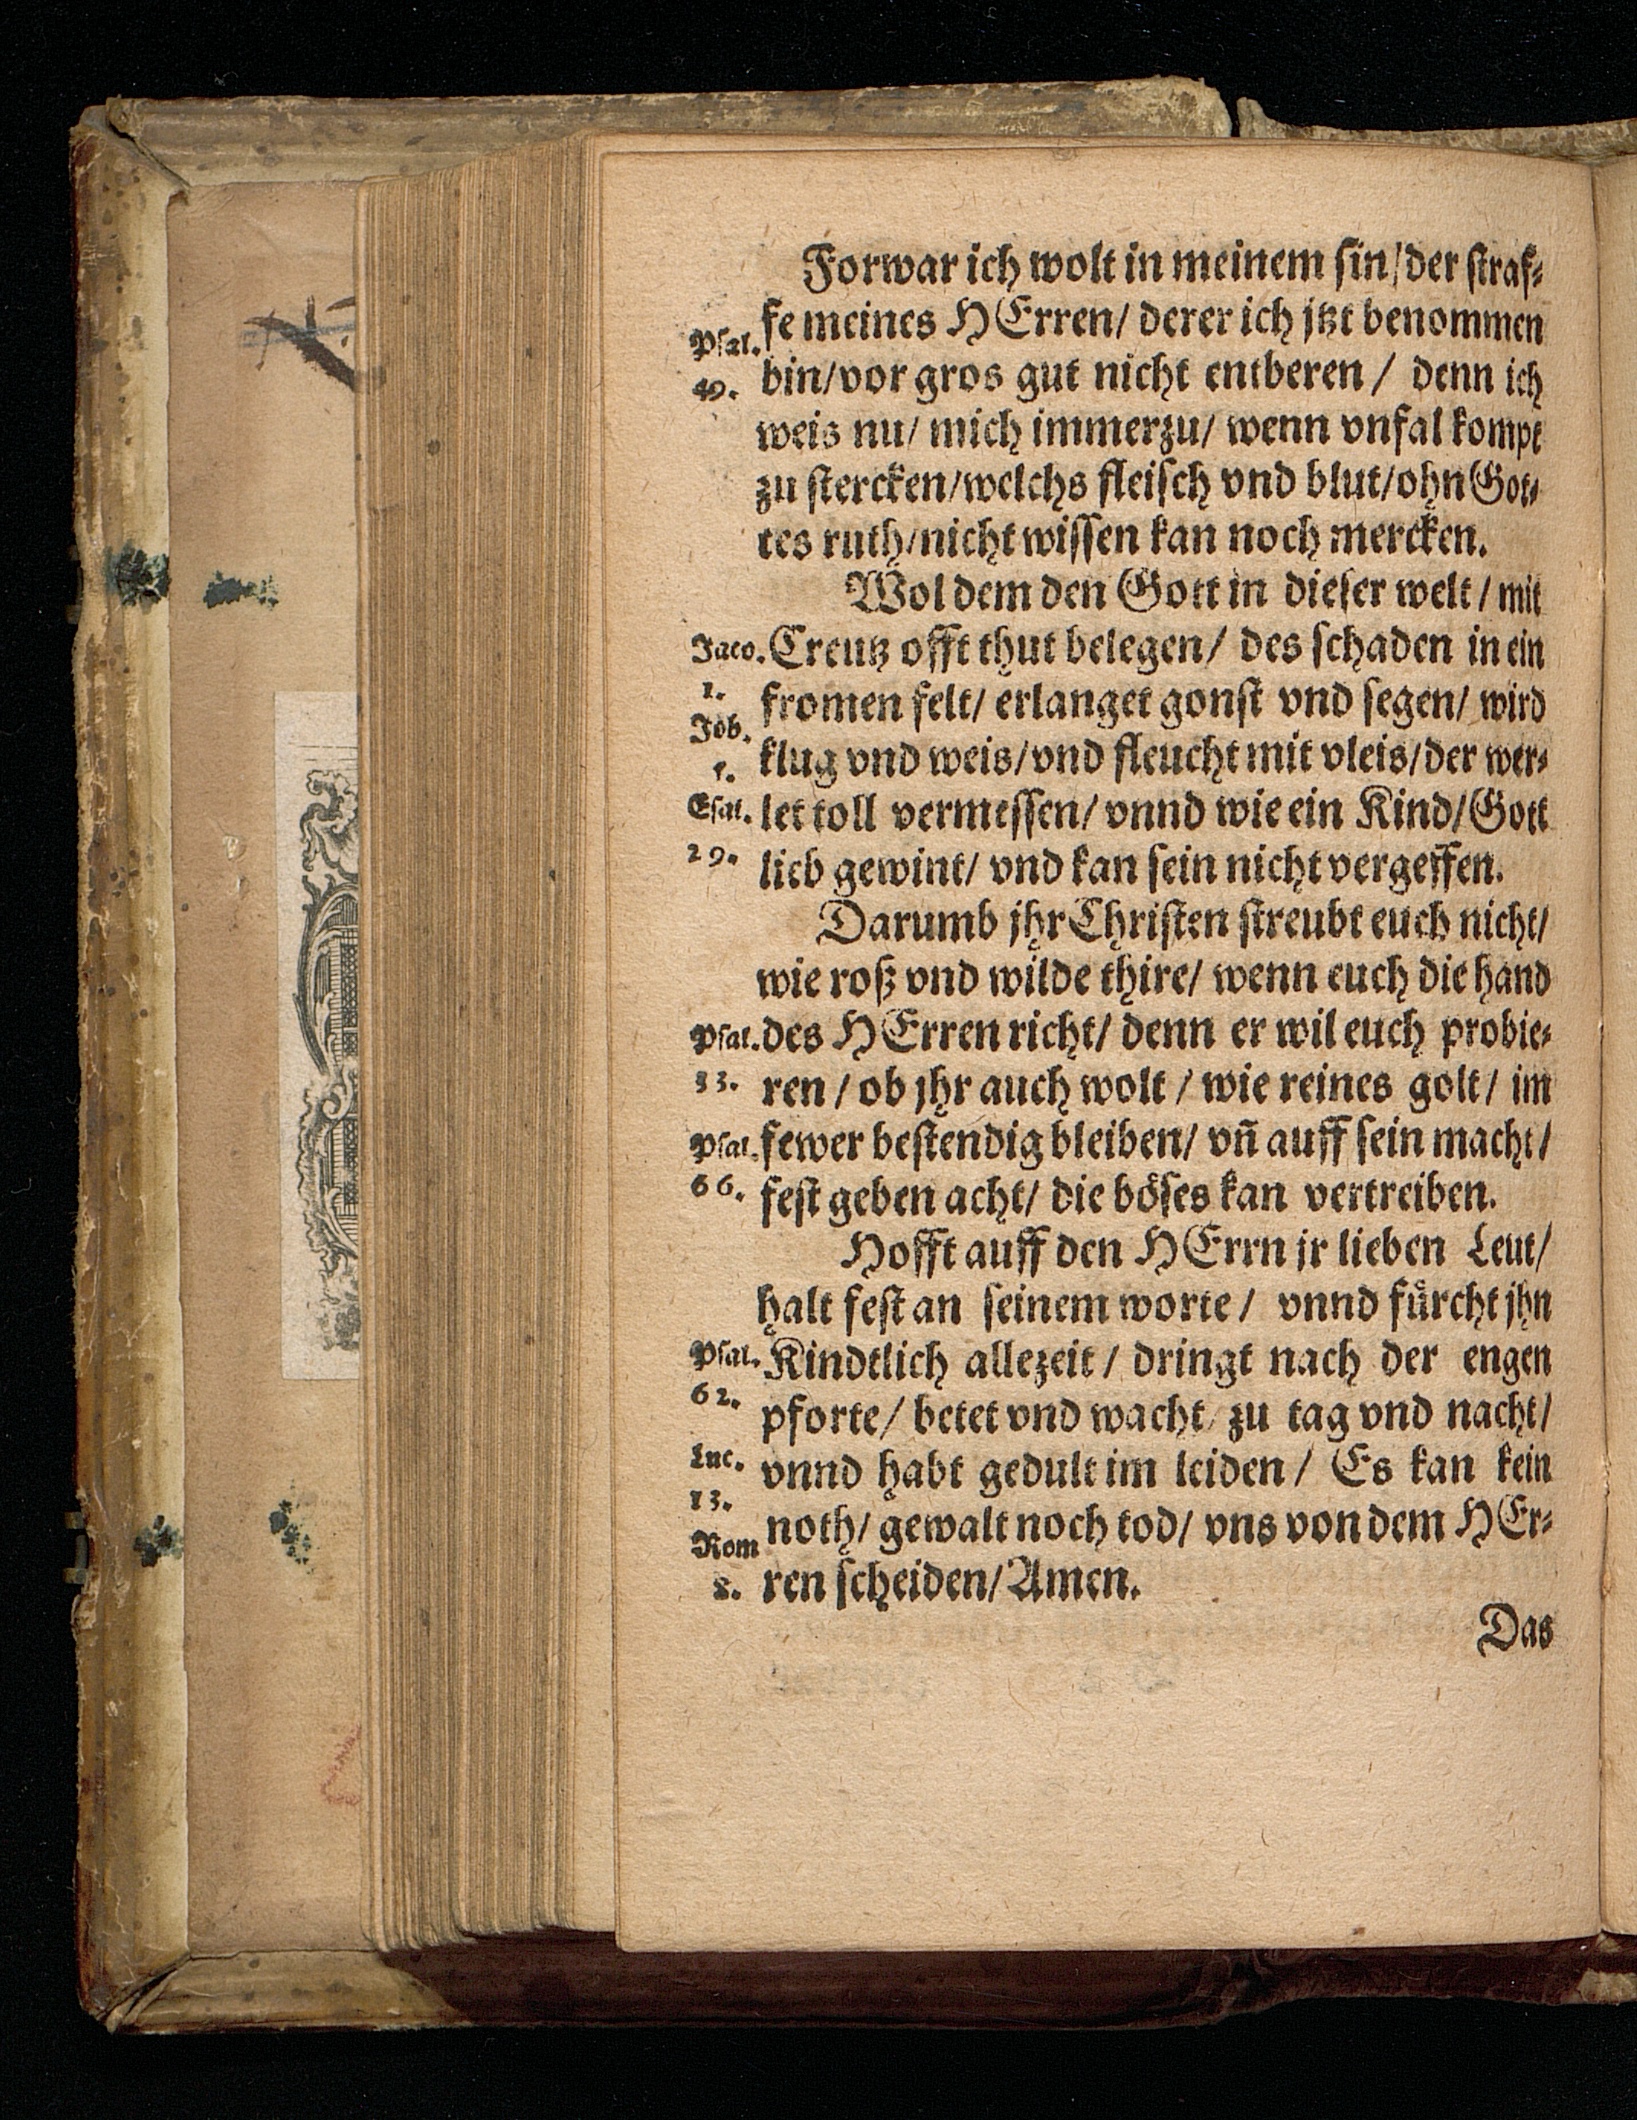 Forwar ich wolt in meinem sin/der straf⸗
fe meines HErren/ derer ich jtzt benommen
Psal.
49. bin/vor gros gut nicht entberen/ denn ich
weis nu/ mich immerzu/ wenn vnfal kompt
zu stercken/welchs fleisch vnd blut/ohn Got⸗
tes ruth/nicht wissen kan noch mercken.
Wol dem den Gott in dieser welt/ mit
Jaco. Creutz offt thut belegen/ des schaden in ein
1. fromen felt/ erlanget gonst vnd segen/ wird
Job.
klug vnd weis/vnd fleucht mit vleis/der wer⸗
Esai. let toll vermessen/ vnnd wie ein Kind/Gott
29. lieb gewint/ vnd kan sein nicht vergessen.
Darumb jhr Christen streubt euch nicht/
wie roß vnd wilde thire/ wenn euch die hand
Psal. des HErren richt/ denn er wil euch probie⸗
33. ren/ ob jhr auch wolt/ wie reines golt/ im
Psal. fewer bestendig bleiben/ vñ auff sein macht/
66. fest geben acht/ die böses kan vertreiben.
Hofft auff den HErrn jr lieben Leut/
halt fest an seinem worte/ vnnd fürcht jhn
Psal. Kindtlich allezeit/ dringt nach der engen
62. pforte/ betet vnd wacht/ zu tag vnd nacht/
Luc. vnnd habt gedult im leiden/ Es kan kein
13.
noth/ gewalt noch tod/ vns von dem HEr⸗
Rom
8. ren scheiden/Amen.
Das